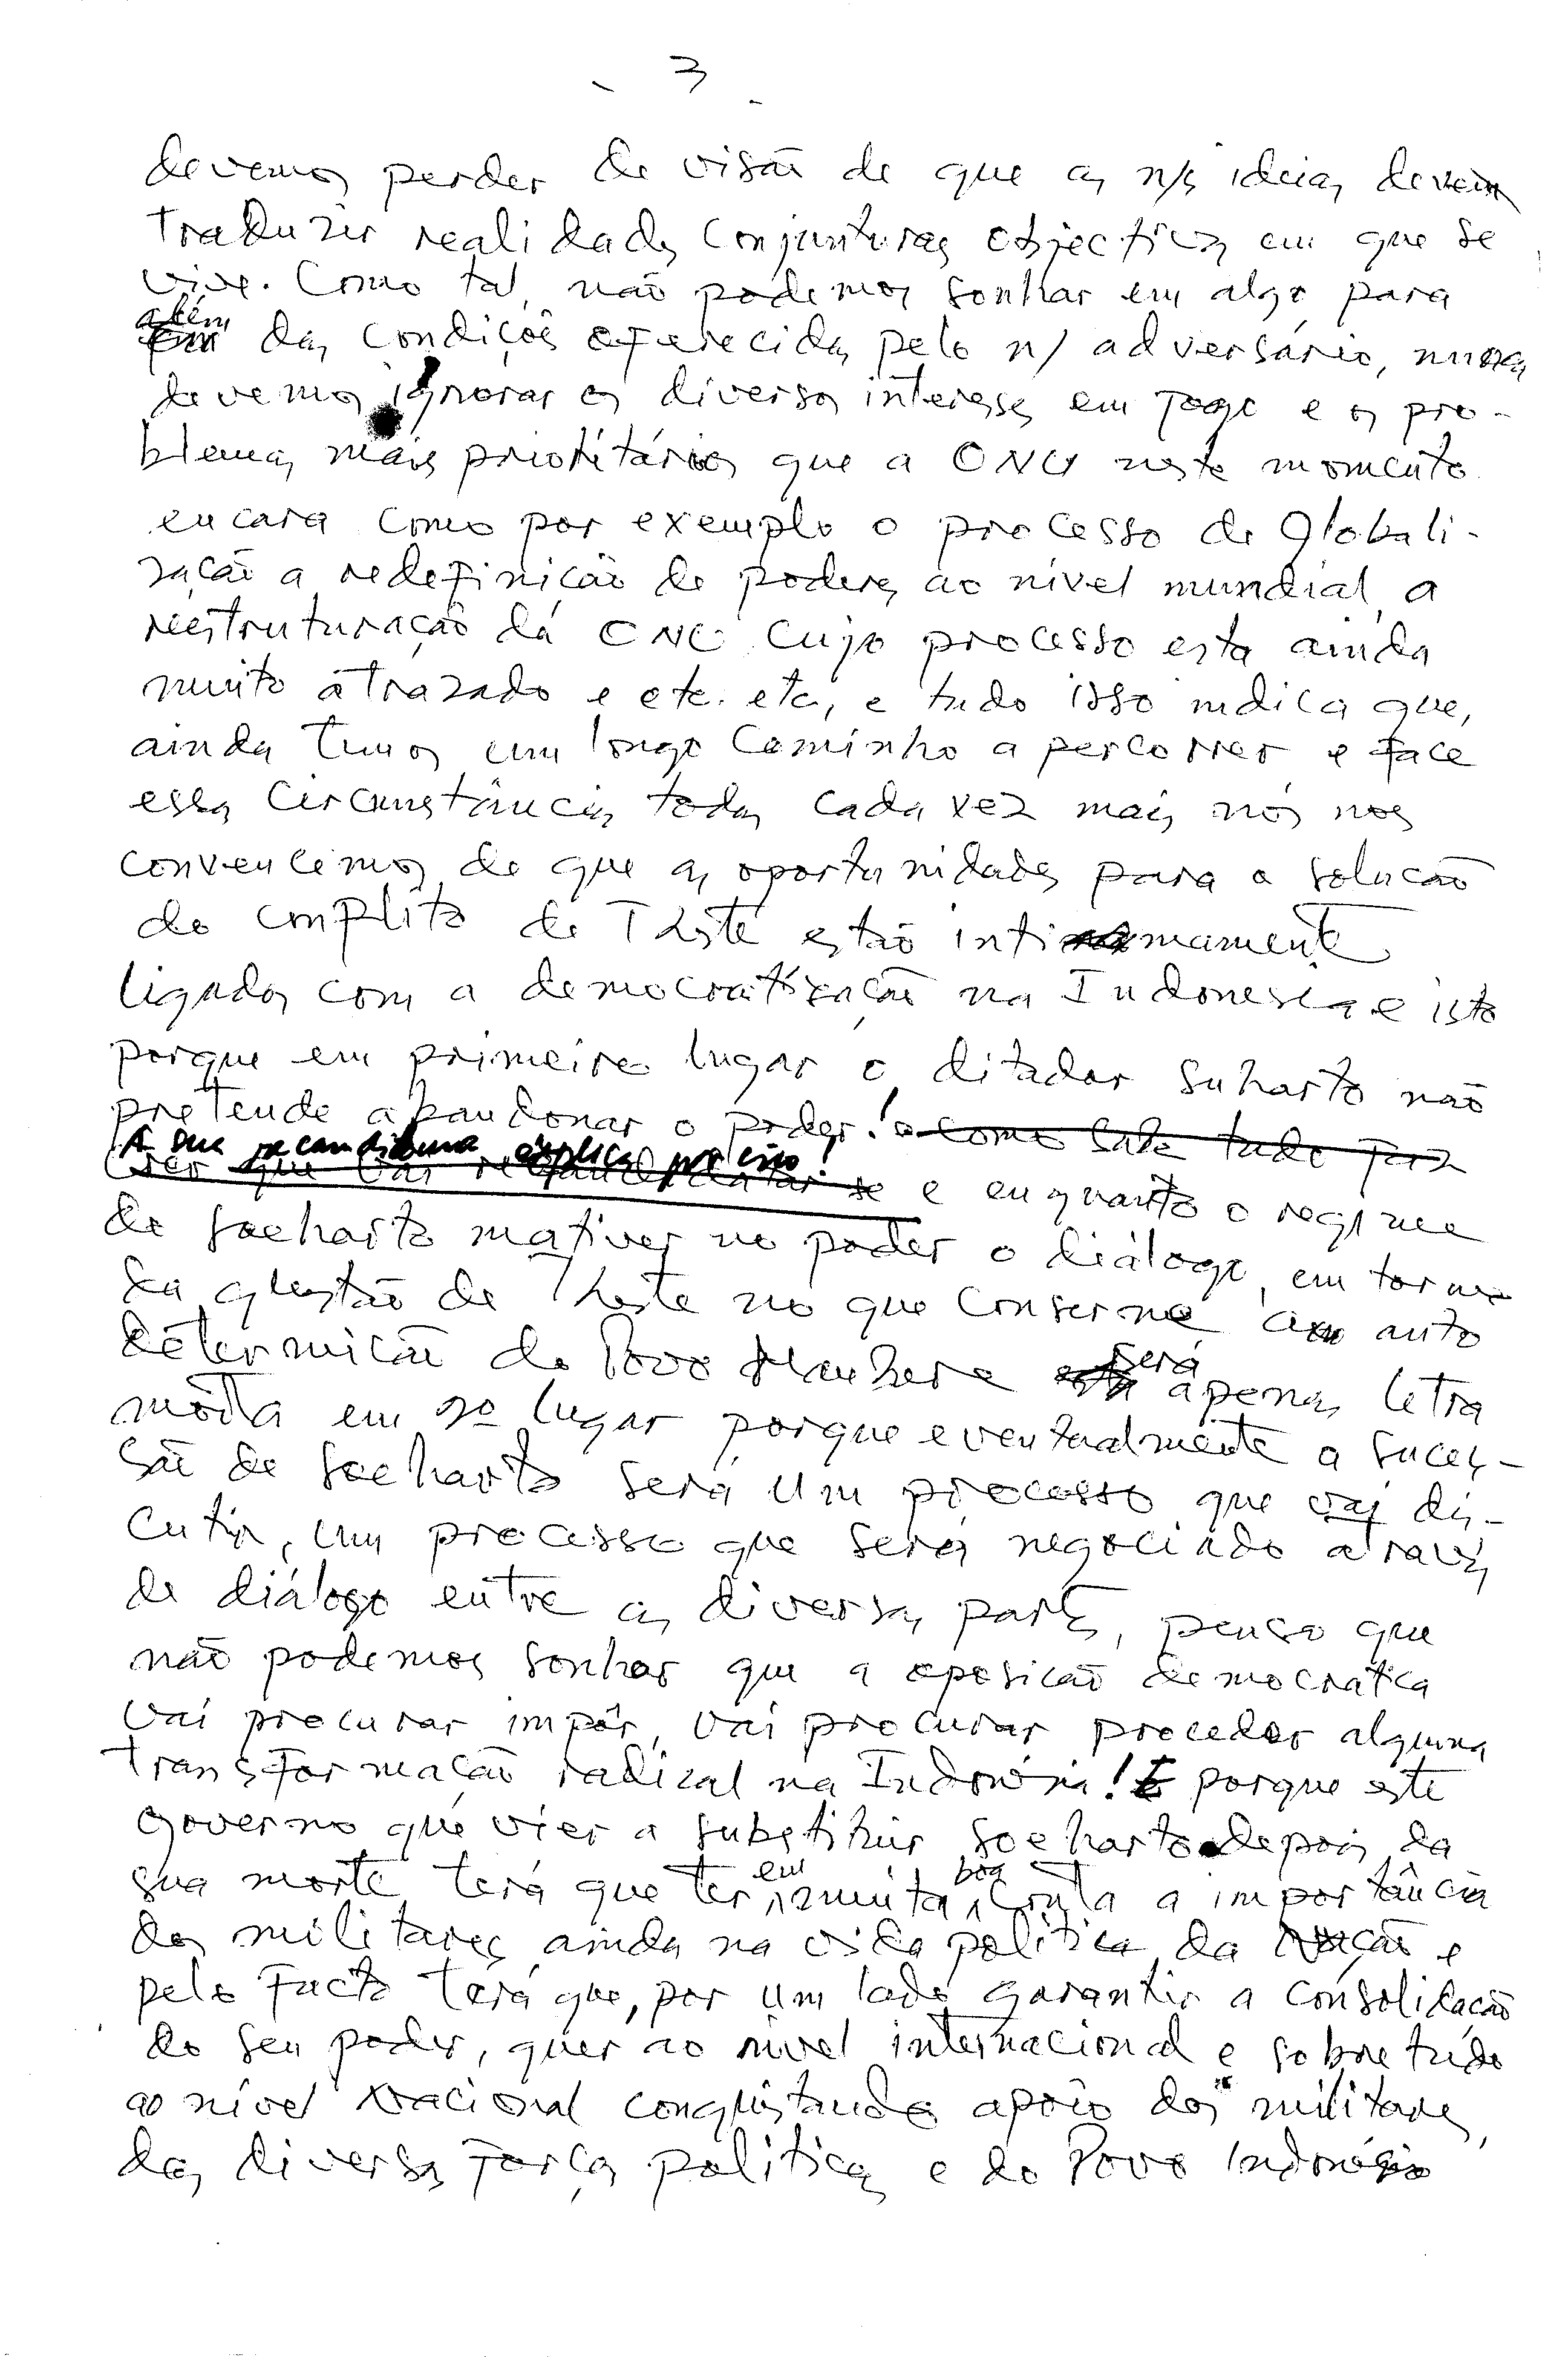 - 3 -
devemos perder de visão de que as n/s ideias devem
traduzir realidades conjunturas objectivas em que se
vive. Como tal, não podemos sonhar em algo para
além das condições oferecidas pelo n/ adversário, nunca
devemos ignorar os diversos interesses em jogo e os pro-
blemas mais prioritários que a ONU neste momento
encara como por exemplo o processo de Globali-
zação a redefinicão de poderes ao nível mundial, a
reestruturação da ONU cujo processo esta ainda
muito atrazado e etc. etc, e tudo isso indica que,
ainda temos um longo caminho a percorrer e face
essas circunstâncias todas cada vez mais nós nos
convencemos de que as oportunidades para a solucão
do conflito de T Leste estão intimamente
ligados com a democratização na Indonesia e isto
porque em primeiro lugar o ditador Suharto não
pretende abandonar o poder! e como sabe tudo faz
A sua recandidatura explica por isso!
e enquanto o regime
de Soeharto mativer no poder o diálogo, em torno
da questão de T Leste no que conserne a auto
determicão do Povo Maubere será apenas letra
morta em 2º lugar porque eventualmente a suces-
são de Soeharto será um processo que vai dis-
cutir, um processo que será negociado através
de diálogo entre as diversas partes, penso que
não podemos sonhar que a oposicão democratica
vai procurar impôr, vai procurar proceder alguma
transformação radical na Indonésia! E porque este
governo que vier a substituir Soeharto depois da
sua morte, terá que ter em muita boa conta a importância
dos militares ainda na vida politica da Nação e
pelo facto terá que, por um lado garantir a consolidação
do seu poder, quer ao nivel internacional e sobretudo
ao nível Nacional conquistando apoio dos militares,
das diversas forças politicas e do Povo Indonésio